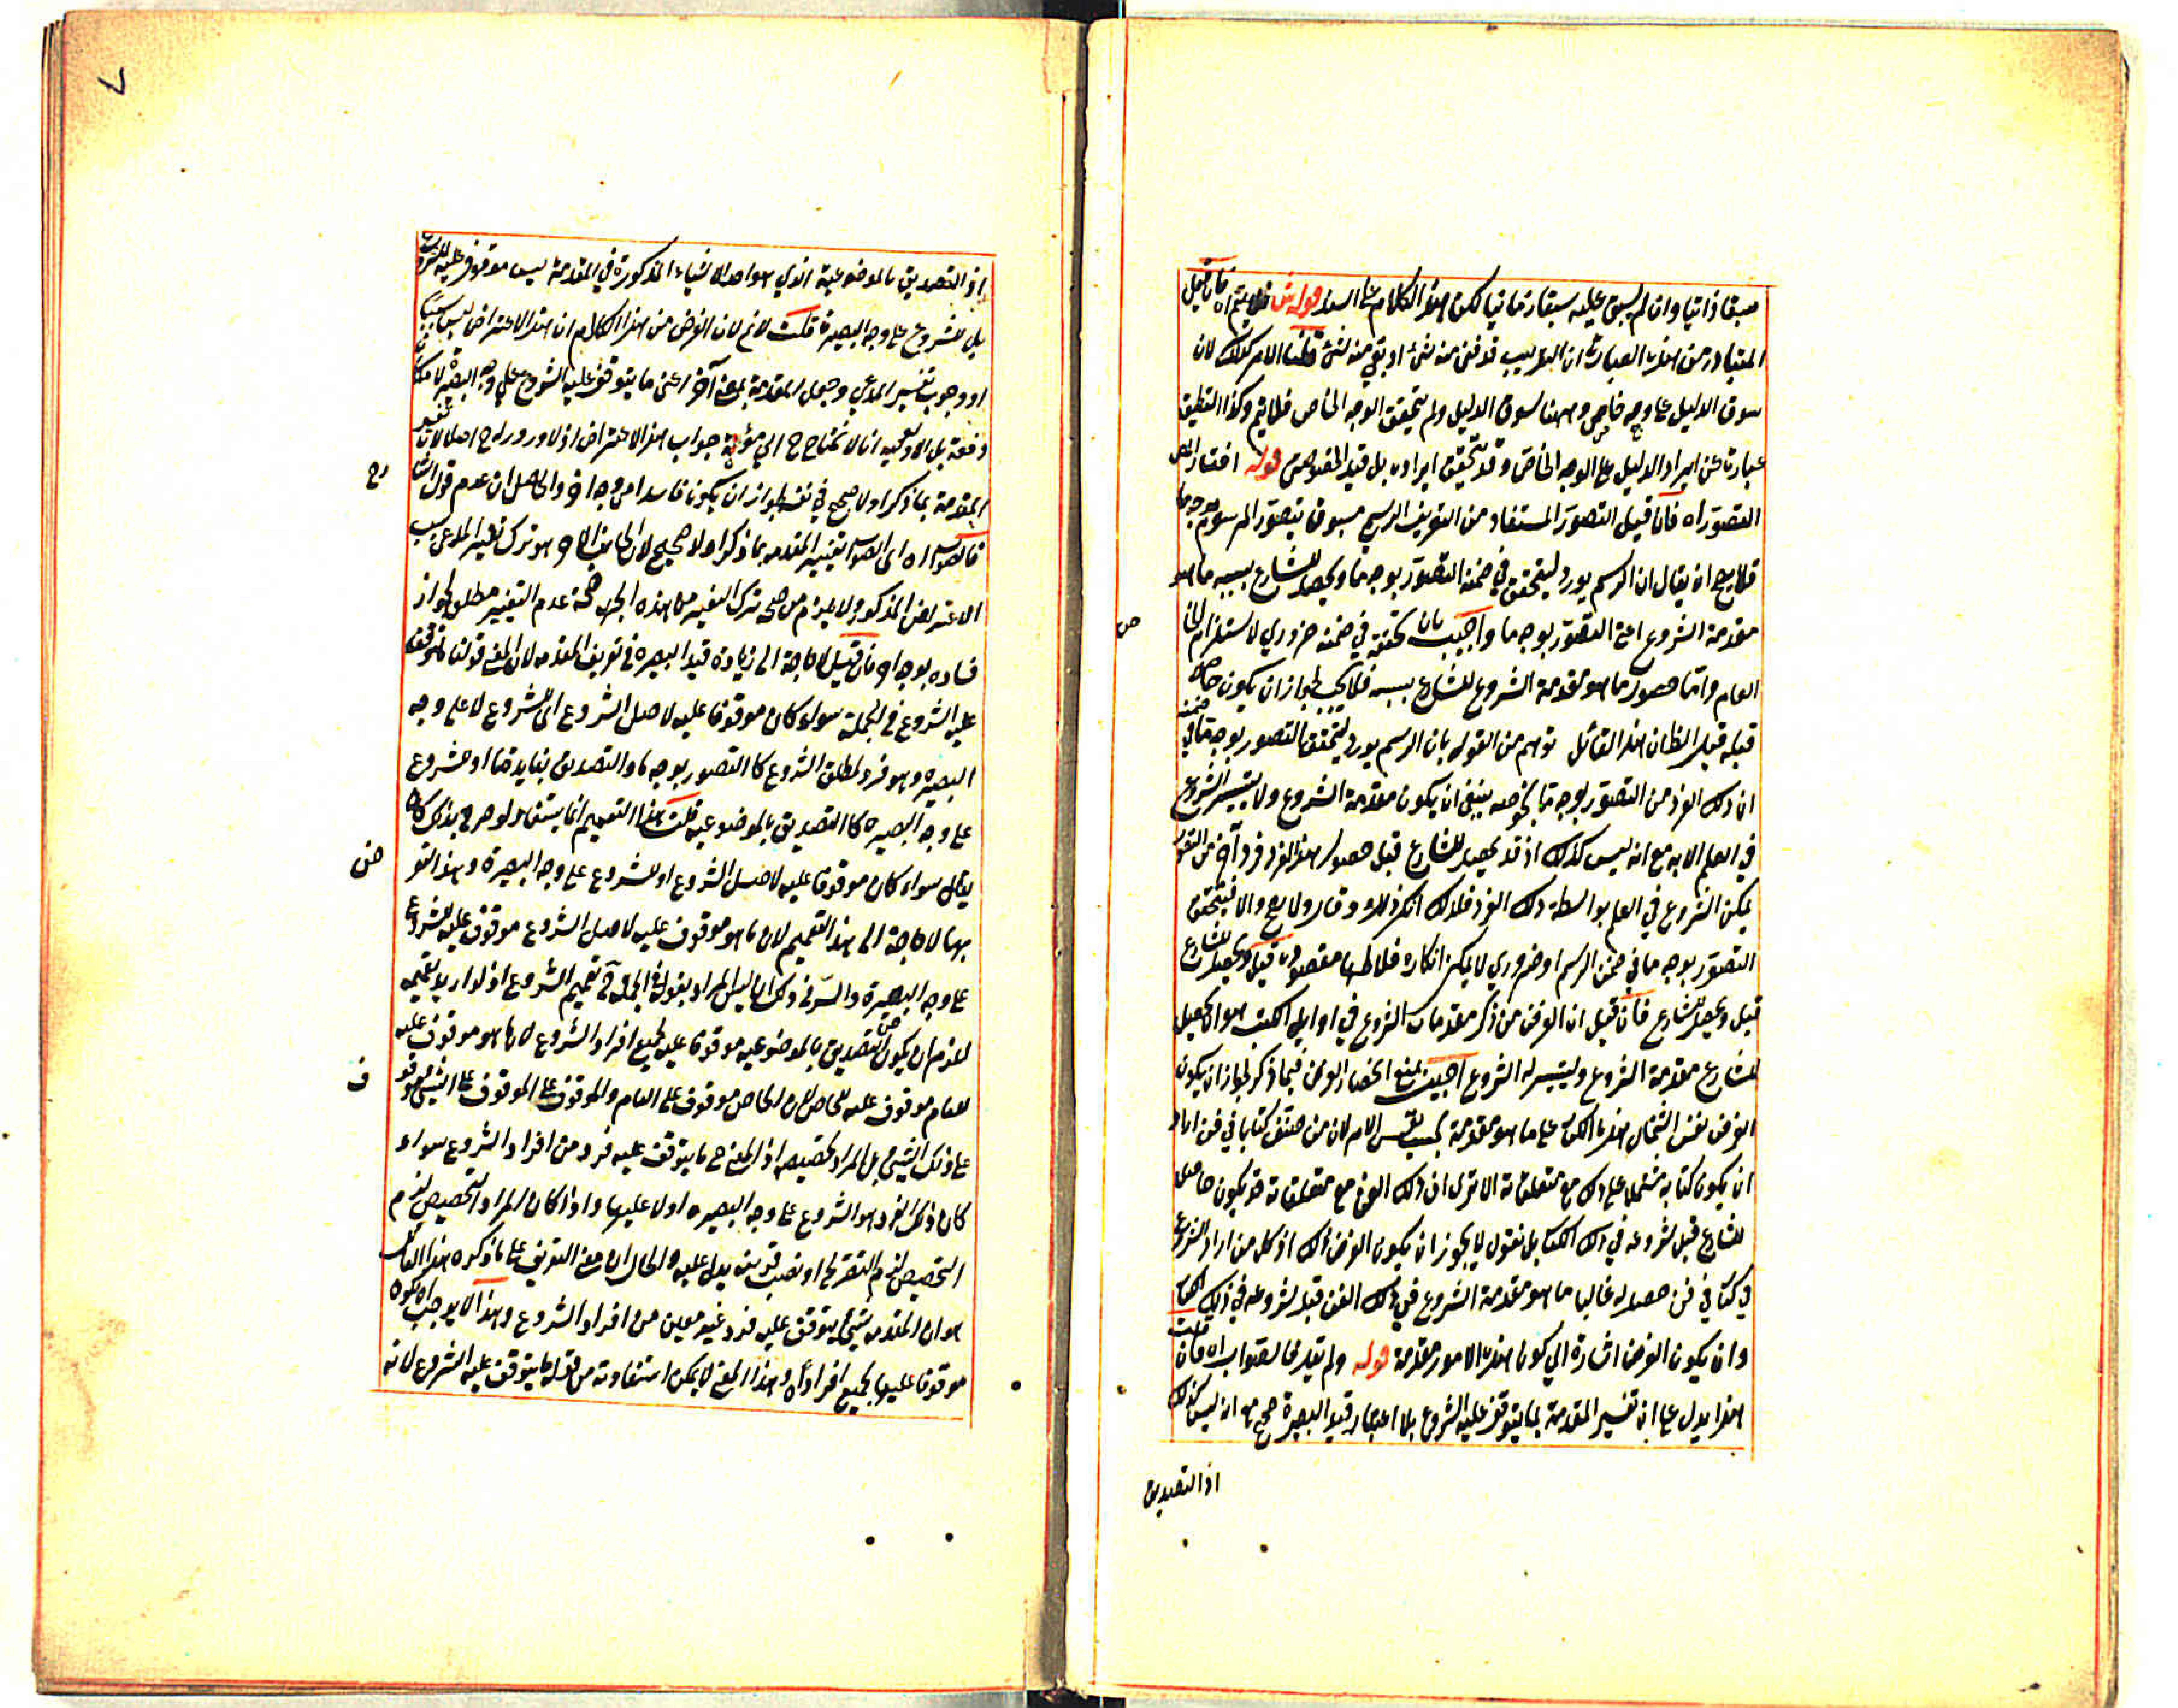 سبقا ذاتيا وان لم يسبق عليه سبقا زمانيا لكن هذا الكلام على السند قوله فلا يتم اه فان قيل
المتبادر من هذه العبارة ان التقريب قد فنى منه شئ او بقي منه شئ قلنا الامر كذلك لان
سوق الدليل على وجه خاص وههنا سوق الدليل ولم يتحقق الوجه الخاص فلا يتم وكذا التطبيق
عبارة عن ايراد الدليل على الوجه الخاص وقد تحقق ايراده بل قيد الخصوص قوله اختار
التصور اه فان قيل التصور المستفاد من التعريف الرسمي مسبوق بتصور المرسوم بوجه ما
فلا يصح ان يقال ان الرسم يورد ليتحقق في ضمنه التصور بوجه ما ويحصل للشارع بسببه ما هو
مقدمة الشروع اعنى التصور بوجه ما واجيب بان تحققه في ضمنه ضروري لاستلزام الخاص
العام واما حصول ما هو مقدمة الشروع للشارع بسببه فلا يجب لجواز ان يكون حاصلا
قبله قيل الظان هذا القائل توهم من القول بان الرسم يورد ليتحقق التصور بوجه ما في ضمنه
ان ذلك الفرد من التصور بوجه ما بخصوصه ينبغي ان يكون مقدمة الشروع ولا يتيسر الشروع
في العلم الا به مع انه ليس كذلك اذ قد يحصل للشارع قبل حصول هذا الفرد فرد آخر من التصور
يمكن الشروع في العلم بواسطة ذلك الفرد فلذلك انكر ذلك وقال ولا يصح والا فتحقق
التصور بوجه ما في ضمن الرسم اوضروري لا يمكن انكاره فلا طر مقصوده قيل ويحصل للشارع
قيل ويحصل للشارع فان قيل ان الغرض من ذكر مقدمات الشروع في اوايل الكتب هو ان يحصل
للشارع مقدمة الشروع وليتيسر له الشروع اجيب بمنع انحصار الغرض فيما ذكر لجواز ان يكون
الغرض نفس اشتمال هذا الكتاب على ما هو مقدمة بحسب نفس الامر لان من صنف كتابا في فن اراد
ان يكون كتابه مشتملا على ذلك مع متعلقاته الا ترى ان ذلك الفن مع متعلقاته قد يكون حاصلا
للشارع قبل شروعه في ذلك الكتاب بل نقول لا يجوز ان يكون الغرض ذلك اذ كل من اراد الشروع
في كتاب في فن حصل له غالبا ما هو مقدمة الشروع في ذلك الفن قبل شروعه في ذلك الكتاب
وان يكون الغرض اشارة الى كون هذه الامور مقدمة قوله ولم تعد فالصواب اه فان قلت
هذا يدل على ان تفسير المقدمة بما يتوقف عليه الشروع بلا اعتبار قيد البصيرة صحيح مع انه ليس كذلك
اذ التصديق
٧
اذ التصديق بالموضوعية الذي هو احد الاشياء المذكورة في المقدمة ليس موقوفا عليه للشروع
بل للشروع على وجه البصيرة قلت لا نم لان الغرض من هذا الكلام ان هذا الاعتراض ليس سببا
لوجوب تفسير المدعي وجعل المقدمة بمعنى آخر اعنى ما يتوقف عليه الشروع على وجه البصيرة لامكان
دفعه بل الاولى فيه انا لا نحتاج ح الى مؤنة جواب هذا الاعتراض اذ لا ورود له ح اصلا لان تفسير
المقدمة بما ذكر اولا صحيح في نفسه لجواز ان يكون فاسدا من وجه آخر والحاصل ان عدم قول الشا رح
فالصواب اه اى الصواب تفسير المقدمة بما ذكر اولا صحيح لان الجانب الآخر هو ترك تغيير المدعى بسبب
الاعتراض المذكور ولا يلزم من صحة ترك التغيير من هذه الجهة صحة عدم التغيير مطلقا لجواز
فساده بوجه آخر فان قيل لا حاجة الى زيادة قيد البصيرة في تعريف المقدمة لان المعنى قولنا ما يتوقف
عليه الشروع في الجملة سواء كان موقوفا عليه لاصل الشروع اى الشروع لا على وجه
البصيرة وهو فرد لمطلق الشروع كا التصور بوجه ما والتصديق بفايدة ما او للشروع
على وجه البصيرة كا التصديق بالموضوعية قلت هذا التعميم انما يستفاد لو صرح بذلك كان
يقال سواء كان موقوفا عليه لاصل الشروع او للشروع على وجه البصيرة وهذا التو ض
بهما لا حاجة الى هذا التعميم لان ما هو موقوف عليه لاصل الشروع موقوف عليه للشروع
على وجه البصيرة والسر في ذلك انه ليس المراد بقوله في الجملة تعميم الشروع اذ لو اريد تعميمه
للزم ان يكون التصديق بالموضوعية موقوفا عليه لجميع افراد الشروع لان ما هو موقوف عليه
للعام موقوف عليه للخاص لان الخاص موقوف على العام والموقوف على الموقوف على الشئ موقو ف
على ذلك الشئ بل المراد تخصيصه اذ المعنى ح ما يتوقف عليه فرد من افراد الشروع سواء
كان ذلك الفرد هو الشروع على وجه البصيرة اولا عليها واذا كان المراد التخصيص لزم
التخصيص لزم التصريح او نصب قرينة يدل عليه والحال ان معنى التعريف على ما ذكره هذا القائل
هو ان المقدمة شئ يتوقف عليه فرد غير معين من افراد الشروع وهذا لا يوجب ان يكون
موقوفا عليها لجميع افراده وهذا المعنى لا يمكن استفادته من قوله ما يتوقف عليه الشروع لانه